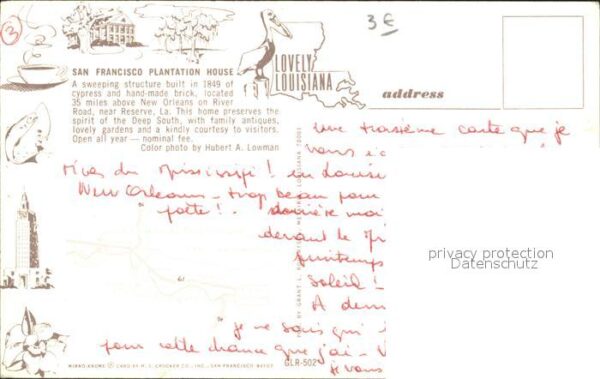 3
3 €
SAN FRANCISCO PLANTATION HOUSE
A sweeping structure built in 1849 of
cypress and hand-made brick, located
35 miles above New Orleans on River
Road, near Reserve, La. This home preserves the
spirit of the Deep South, with family antiques,
lovely gardens and a kindly courtesy to visitors.
Open all year — nominal fee.
Color photo by Hubert A. Lowman
LOVELY
LOUISIANA
address
une troisième carte que je
vous
rives du Mississipi! en Louisi
New Orleans - trop beau pour
derrière moi
devant le
printemps
soleil!
A dem
je ne sais qui
pour cette chance que j'ai -
je vous
PUB. BY GRANT L.
LOUISIANA
MIRRO-KROME ® CARD BY H. S. CROCKER CO., INC., SAN FRANCISCO
GLR-502
privacy protection
Datenschutz